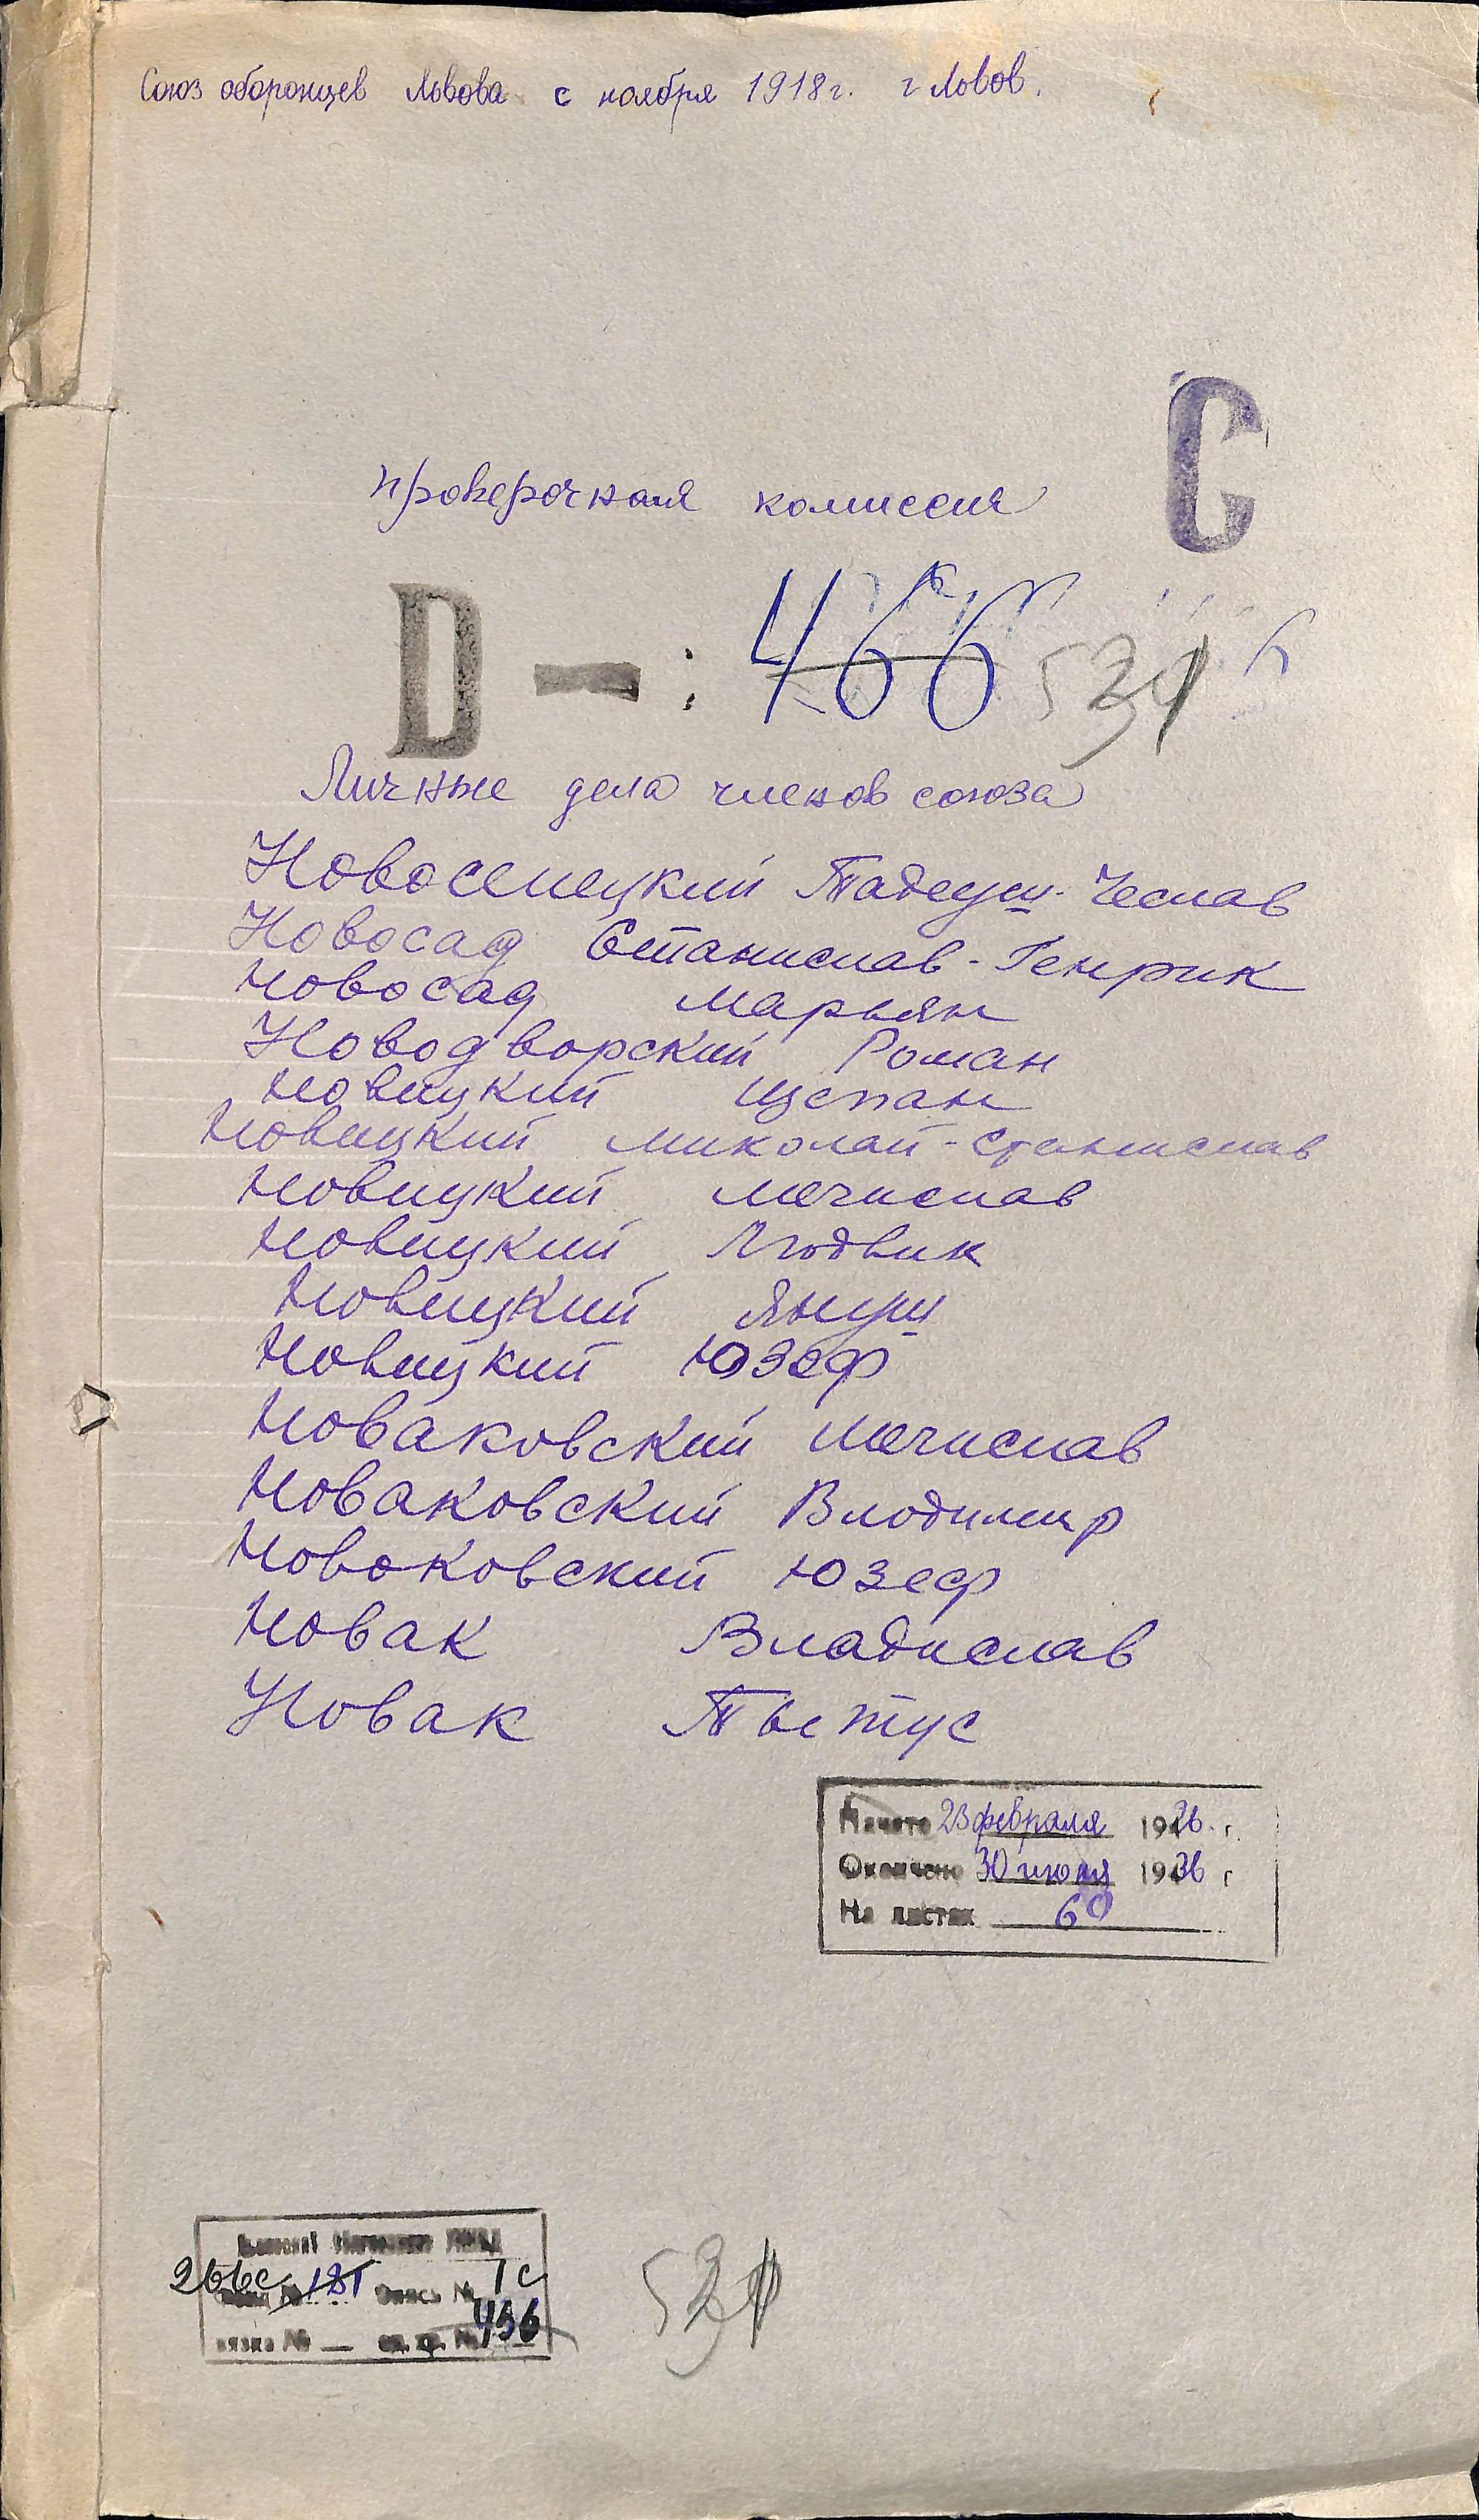 Союз оборонцев Львова с ноября 1918 г. г Львов.
С
проверочная комиссия
D — : 466 531
Личные дела членов союза
Новоселецкий Тадеуш-Чеслав
Новосад Станислав-Генрик
Новосад Марьян
Новодворский Роман
Новицкий Щепан
Новицкий Миколай-Станислав
Новицкий Мечислав
Новицкий Людвик
Новицкий Януш
Новицкий Юзеф
Новаковский Мечислав
Новаковский Влодимир
Новоковский Юзеф
Новак Владислав
Новак Тытус
Начато 23 февраля 1926 г.
Окончено 30 июня 1936 г
На листах 60
266с 181 Опись № 1с
вязка № — ед. хр. № 456
531